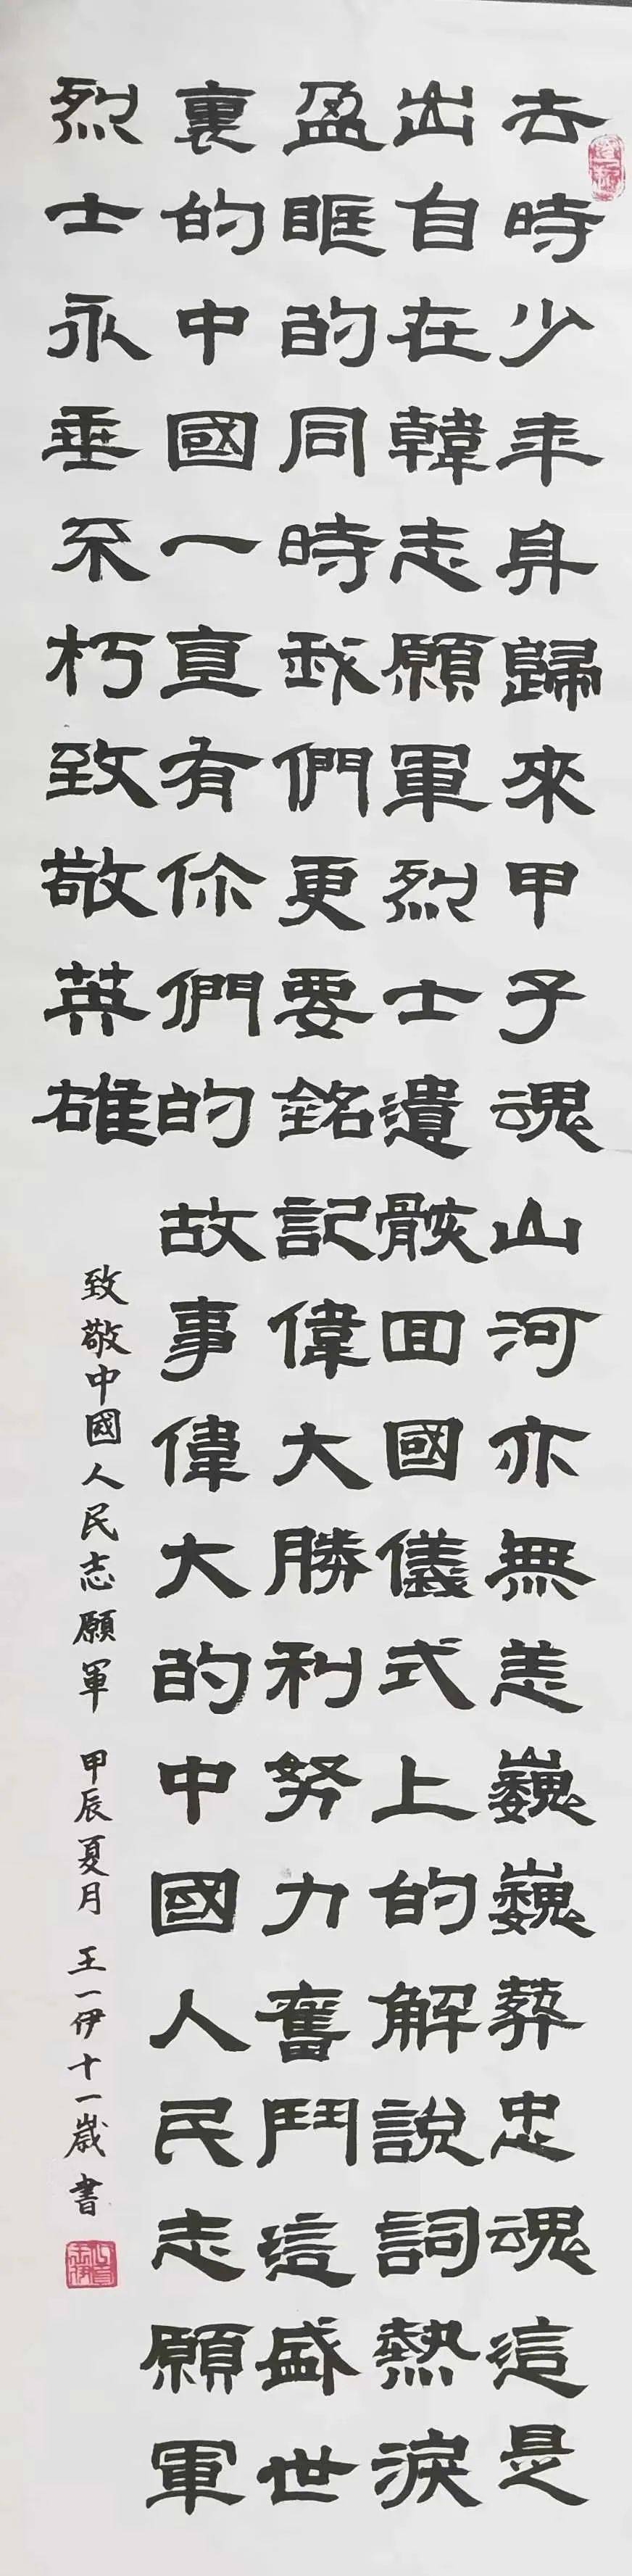 去時少年身歸來甲子魂山河亦無恙巍巍葬忠魂這是
出自在韓志願軍烈士遺骸回國儀式上的解說詞熱淚
盈眶的同時我們更要銘記偉大勝利努力奮鬥這盛世
裏的中國一直有你們的故事偉大的中國人民志願軍
烈士永垂不朽致敬英雄
致敬中國人民志願軍 甲辰夏月 王一伊十一歲書